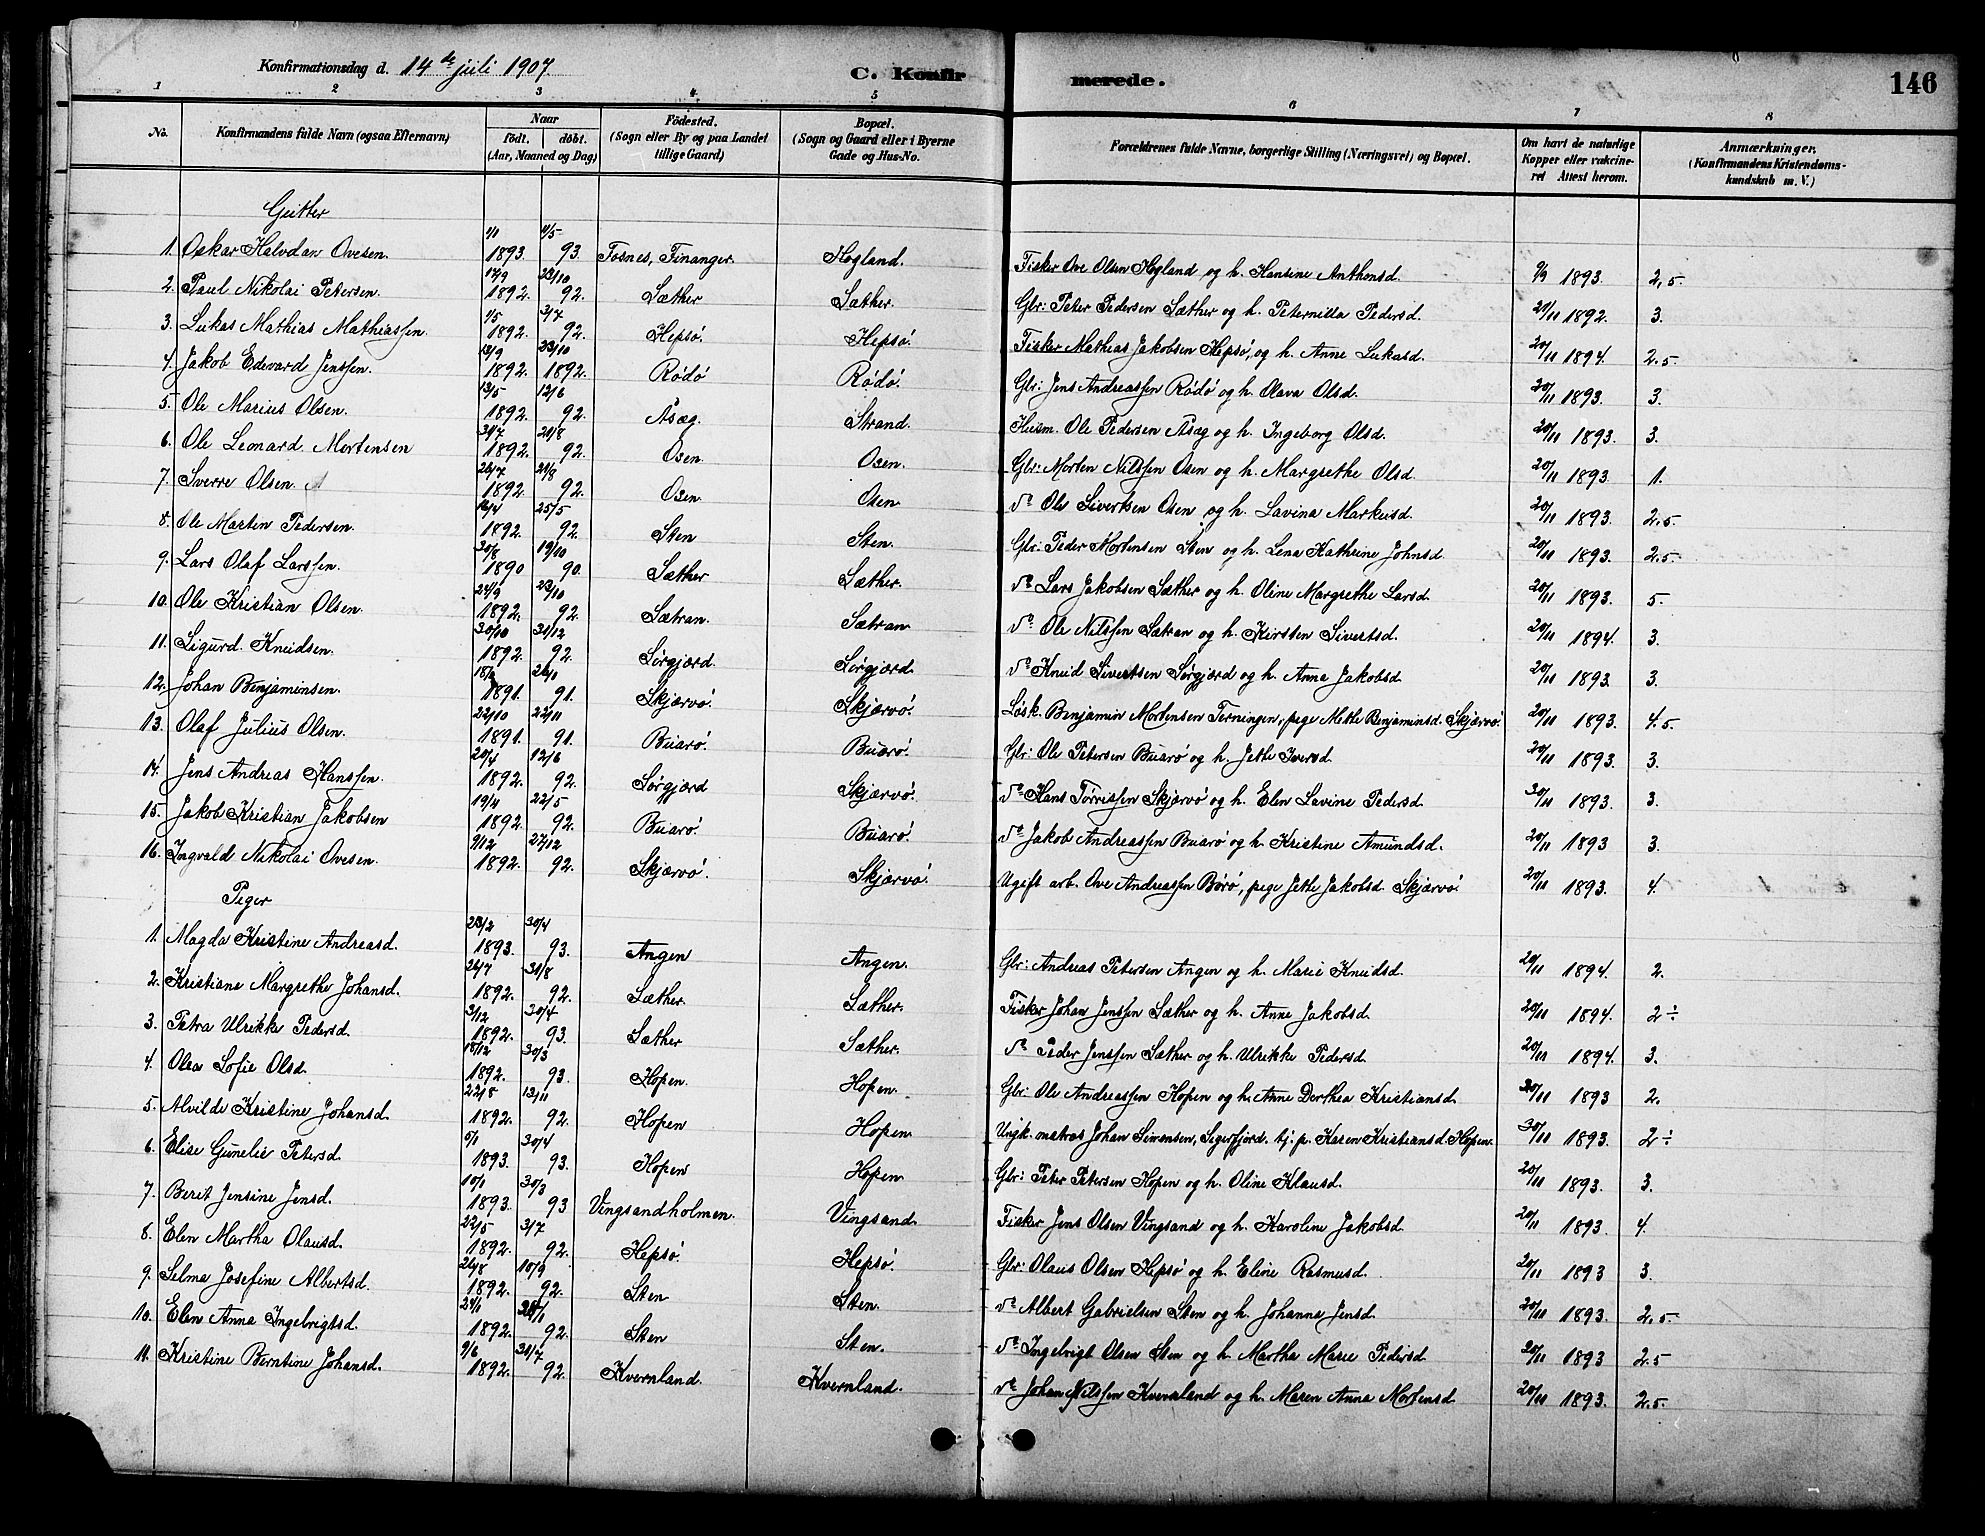 Konfirmationsdag d. 14de juli 1907. C. Konfirmerede. 146
1 2 3 4 5 6 7 8
No. Konfirmandens fulde Navn (ogsaa Efternavn) Naar født. døbt. (Aar, Maaned og Dag) Fødested. (Sogn eller By og paa Landet tillige Gaard) Bopæl. (Sogn og Gaard eller i Byerne Gade og Hus-No. Forældrenes fulde Navne, borgerlige Stilling (Næringsvei) og Bopæl. Om havt de naturlige Kopper eller vakcineret Attest herom. Anmærkninger. (Konfirmandens Kristendomskundskab m. V.)
Gutter
1. Oskar Halvdan Ovesen. 1/1 1893. 11/5 93. Fosnes, Finanger. Hogland. Fisker Ove Olsen Hogland og h. Hansine Anthonsd. 9/9 1893. 2,5.
2. Paul Nikolai Petersen. 17/9 1892. 23/10 92. Sæther Sæther. Gbr: Peter Pedersen Sæther og h. Peternilla Pedersd. 21/11 1892. 3.
3. Lukas Mathias Mathiassen. 1/5 1892. 3/7 92. Hepsö. Hepsö. Fisker Mathias Jakobsen Hepsö, og h. Anne Lukasd. 20/11 1894. 2,5
4. Jakob Edevard Jenssen. 13/9 1892. 23/10 1892. Rödö Rödö. Gbr: Jens Andreassen Rödö og h. Olava Olsd. 20/11 1893. 3.
5. Ole Marius Olsen. 13/5 1892. 12/6 92. Asæg. Strand. Husm. Ole Pedersen Asæg og h. Ingeborg Olsd. 20/11 1893. 3.
6. Ole Leonard Mortensen 31/7 1892. 21/8 92. Osen. Osen. Gbr: Morten Nilssen Osen og h. Margrethe Olsd. 20/11 1893. 1.
7. Sverre Olsen. 26/7 1892. 21/8 92. Osen. Osen do Ole Sivertsen Osen og h. Lavina Markusd. 20/11 1893. 2,5.
8. Ole Martin Pedersen. 16/4 1892. 25/5 92. Sten Sten. Gbr: Peder Mortensen Sten og h. Lena Kathrine Johnsd. 20/11 1893. 2,5.
9. Lars Olaf Larssen. 30/8 1890 19/10 90. Sæther Sæther. do Lars Jakobsen Sæther og h. Oline Margrethe Larsd. 20/11 1893. 5.
10. Ole Kristian Olsen. 24/9 1892. 23/10 92. Sætran. Sætran do Ole Nilssen Sætran og h. Kirsten Sivertsd. 20/11 1894. 3.
11. Sigurd Knudsen. 30/10 1892. 31/12 92. Sörgjærd. Sörgjærd do Knud Sivertsen Sörgjærd og h. Anna Jakobsd. 20/11 1893. 3.
12. Johan Benjaminsen. 1891. 91. Skjærvö. Skjærvö. Løsk. Benjamin Mortensen Terningen, pige Methe Benjaminsd. Skjærvö. 20/11 1893. 4,5
13. Olaf Julius Olsen. 22/10 1891. 22/11 91. Buarö. Buarö. Gbr: Ole Petersen Buarö og h. Jette Iversd. 20/11 1893. 3.
14. Jens Andreas Hanssen. 20/4 1892. 12/6 92. Sörgjærd Skjærvö. do Hans Törrissen Skjærvö og h. Elen Lavine Pedersd. 30/11 1893. 3.
15. Jakob Kristian Jakobsen 19/4 1892. 22/5 92. Buarö. Buarö. do Jakob Andreassen Buarö og h. Kristine Amundsd. 20/11 1893 3.
16. Ingvald Nikolai Ovesen. 9/12 1892. 27/12 92. Skjærvö. Skjærvö. Ugift arb. Ove Andreassen Börö, pige Jette Jakobsd Skjærvö. 20/11 1893. 4.
Piger
1. Magda Kristine Andreasd. 23/2 1893. 30/4 93. Angen Angen. Gbr: Andreas Petersen Angen og h. Marie Knudsd. 20/11 1894. 2.
2. Kristiane Margrethe Johansd. 26/7 1892. 31/8 92. Sæther. Sæther. Fisker Johan Jenssen Sæther og h. Anne Jakobsd. 20/11 1894. 2÷
3. Petra Ulrikke Pedersd. 3/12 1892. 30/4 93. Sæther Sæther. do Peder Jenssen Sæther og h. Ulrikke Pedersd. 20/11 1894. 3.
4. Olea Sofie Olsd. 18/12 1892. 30/3 93. Hopen. Hopen. Gbr: Ole Andreassen Hopen og h. Anne Dorthea Kristiansd. 20/11 1893 2.
5. Alvilde Kristine Johansd. 22/8 1892. 13/11 92. Hopen Hopen. Ungk. matros Johan Simensen, Sigerfjord. tj. p. Karen Kristiansd. Hopen. 30/11 1893. 2÷
6. Elise Gunelie Petersd. 6/1 1893. 30/4 93. Hopen Hopen. Gbr: Peter Petersen Hopen og h. Oline Klausd. 20/11 1893. 3.
7. Berit Jensine Jensd. 10/1 1893. 30/3 93 Vingsandholmen. Vingsand. Fisker Jens Olsen Vingsand og h. Karoline Jakobsd. 20/11 1893 4.
8. Elen Martha Olausd. 22/5 1892. 3/7 92. Hepsö. Hepsö. Gbr: Olaus Olsen Hepsö og h. Eline Rasmusd. 20/11 1893 3.
9. Selma Josefine Albertsd. 26/8 1892. 10/9 92. Sten Sten. do Albert Gabrielsen Sten og h. Johanna Jensd. 20/11 1893. 2,5.
10. Elen Anna Ingebrigtsd. 24/1 1892. 92. Sten Sten. do Ingebrigt Olsen Sten og h. Martha Marie Pedersd. 20/11 1893 2,5
11. Kristine Berntine Johansd. 9/6 1892. 31/7 92. Kvernland. Kvernland. do Johan Nilssen Kvernland og h. Maren Anna Mortensd. 20/11 1893. 2,5.